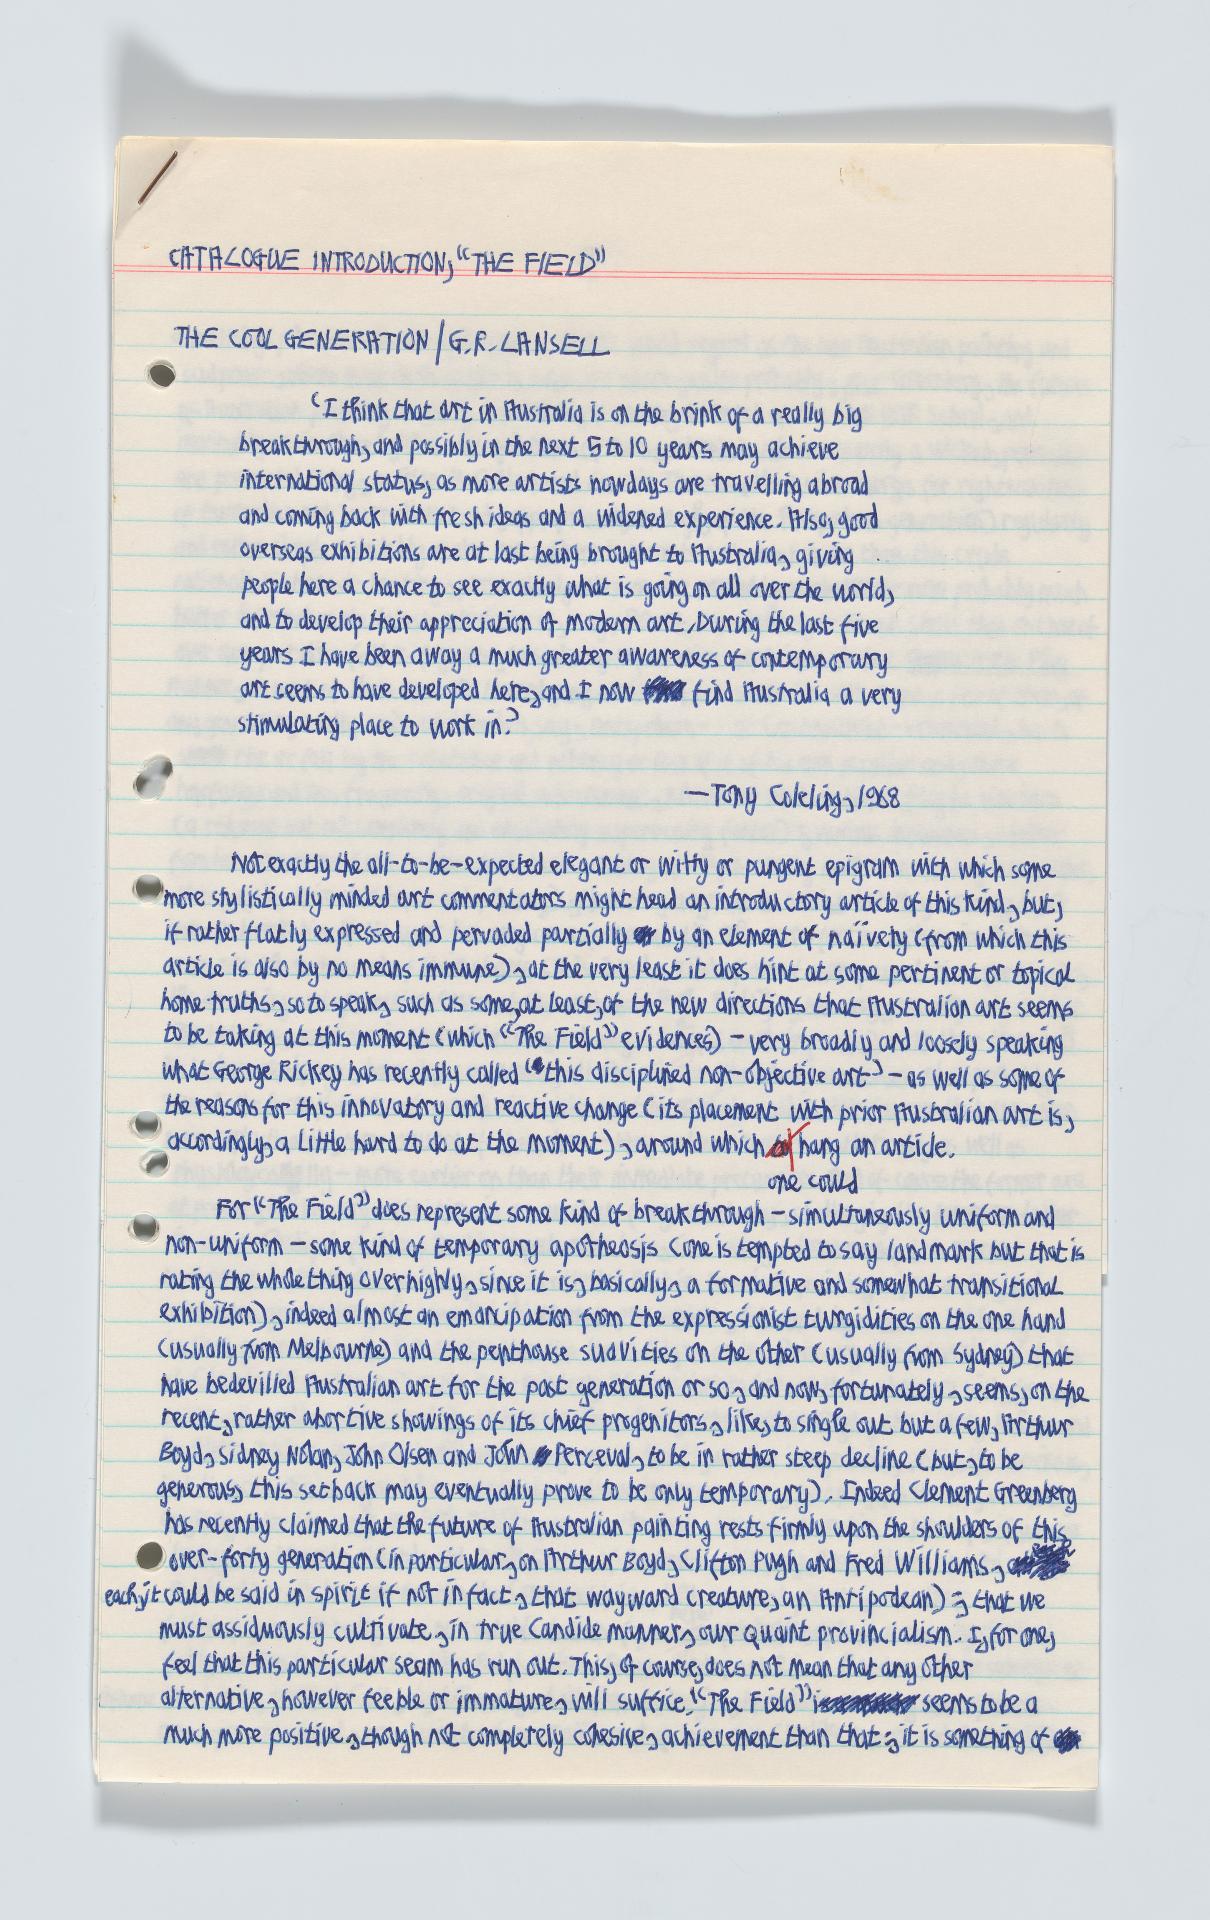 CATALOGUE INTRODUCTION, "THE FIELD"
THE COOL GENERATION / G.R. LANSELL
'I think that art in Australia is on the brink of a really big
breakthrough, and possibly in the next 5 to 10 years may achieve
international status, as more artists nowdays are travelling abroad
and coming back with fresh ideas and a widened experience. Also, good
overseas exhibitions are at last being brought to Australia, giving
people here a chance to see exactly what is going on all over the world,
and to develop their appreciation of modern art. During the last five
years I have been away a much greater awareness of contemporary
art seems to have developed here, and I now find Australia a very
stimulating place to work in.'
—Tony Coleing, 1968
Not exactly the all-to-be-expected elegant or witty or pungent epigram with which some
more stylistically minded art commentators might head an introductory article of this kind, but,
if rather flatly expressed and pervaded partially by an element of naïvety (from which this
article is also by no means immune), at the very least it does hint at some pertinent or topical
home-truths, so to speak, such as some, at least, of the new directions that Australian art seems
to be taking at this moment (which "The Field" evidences) – very broadly and loosely speaking
what George Rickey has recently called 'this disciplined non-objective art' – as well as some of
the reasons for this innovatory and reactive change (its placement with prior Australian art is,
accordingly, a little hard to do at the moment), around which hang an article.
one could
For "The Field" does represent some kind of breakthrough – simultaneously uniform and
non-uniform – some kind of temporary apotheosis (one is tempted to say landmark but that is
rating the whole thing over highly, since it is, basically, a formative and somewhat transitional
exhibition), indeed almost an emancipation from the expressionist turgidities on the one hand
(usually from Melbourne) and the penthouse suavities on the other (usually from Sydney) that
have bedevilled Australian art for the past generation or so, and now, fortunately, seems, on the
recent, rather abortive showings of its chief progenitors, like, to single out but a few, Arthur
Boyd, Sidney Nolan, John Olsen and John Perceval, to be in rather steep decline (but, to be
generous, this setback may eventually prove to be only temporary). Indeed Clement Greenberg
has recently claimed that the future of Australian painting rests firmly upon the shoulders of this
over-forty generation (in particular, on Arthur Boyd, Clifton Pugh and Fred Williams,
each, it could be said in spirit if not in fact, that wayward creature, an Antipodean); that we
must assiduously cultivate, in true Candide manner, our quaint provincialism. I, for one,
feel that this particular seam has run out. This, of course, does not mean that any other
alternative, however feeble or immature, will suffice. "The Field" seems to be a
much more positive, though not completely cohesive, achievement than that; it is something of